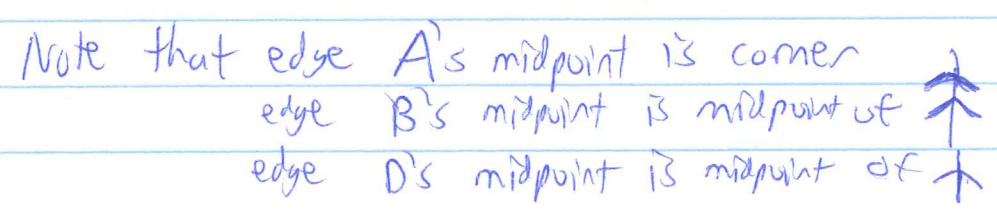 Note that edge A's midpoint is corner
edge B's midpoint is midpoint of
edge D's midpoint is midpoint of